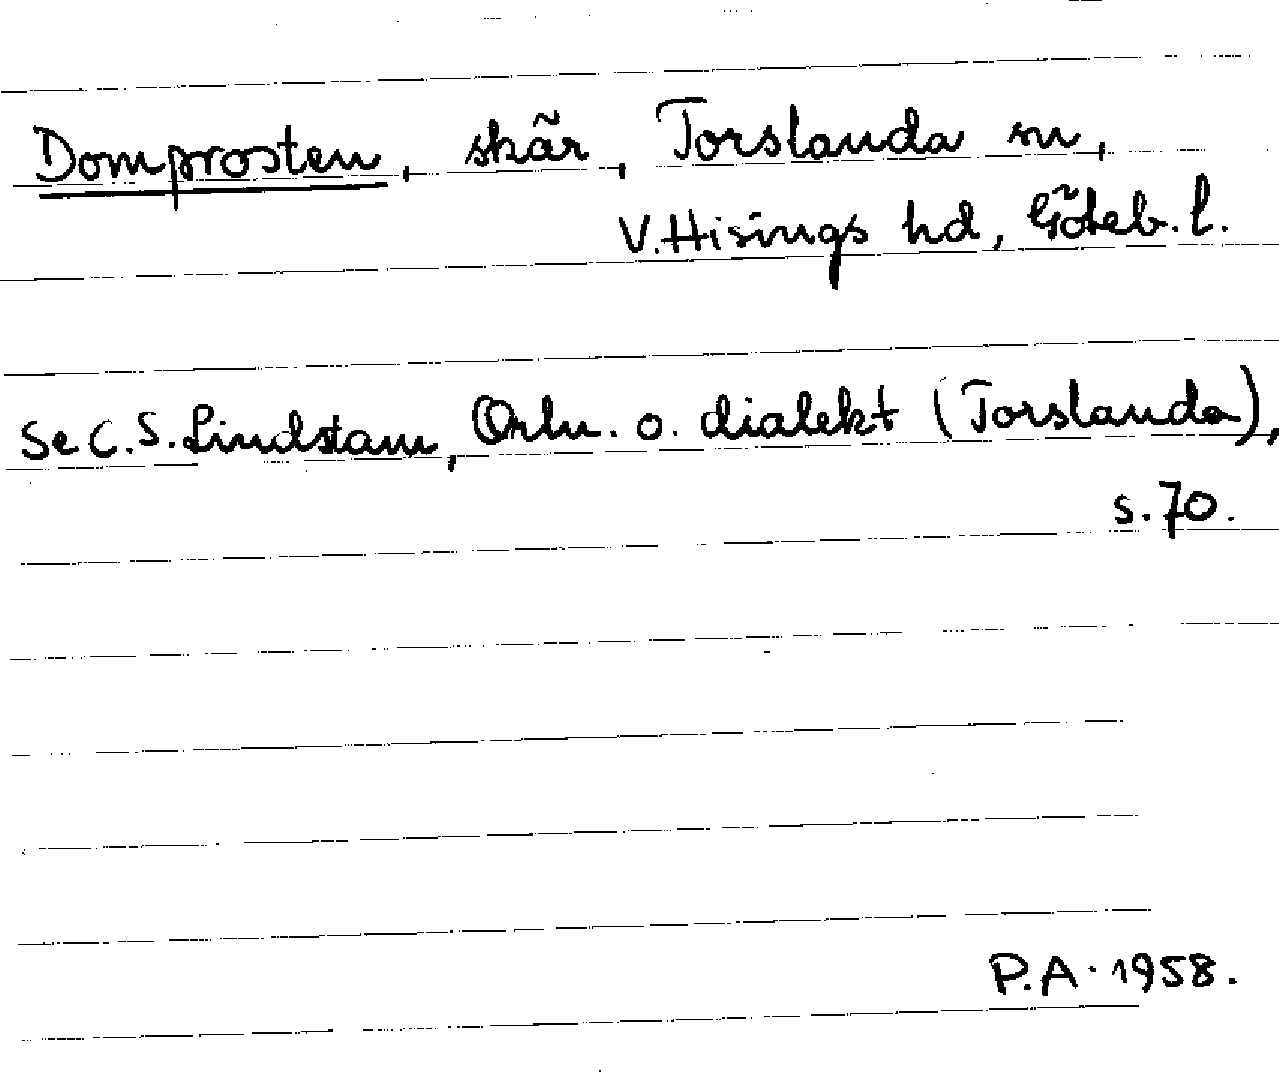 Domprosten, skär, Torslanda sn,
V. Hisings hd, Göteb. l.
Se C. S. Lindstam, Ortn. o. dialekt (Torslanda),
s. 70.
P.A. 1958.